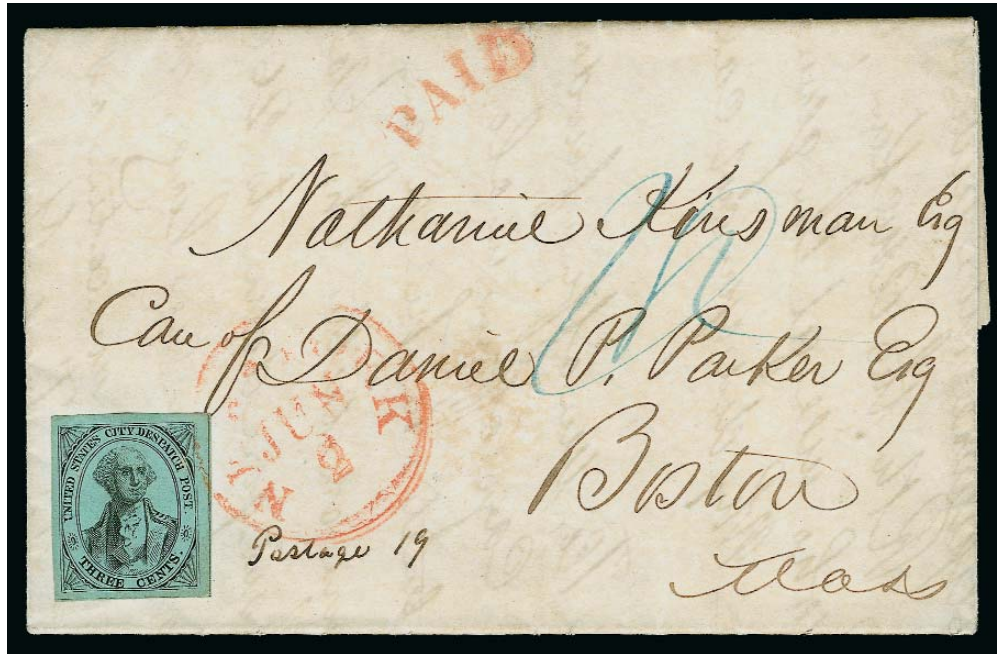 PAID
Nathaniel Kinsman Esq
Care of Daniel P. Parker Esq
Boston
Mass
NEW YORK
JUN
UNITED STATES CITY DESPATCH POST.
THREE CENTS.
Postage 19